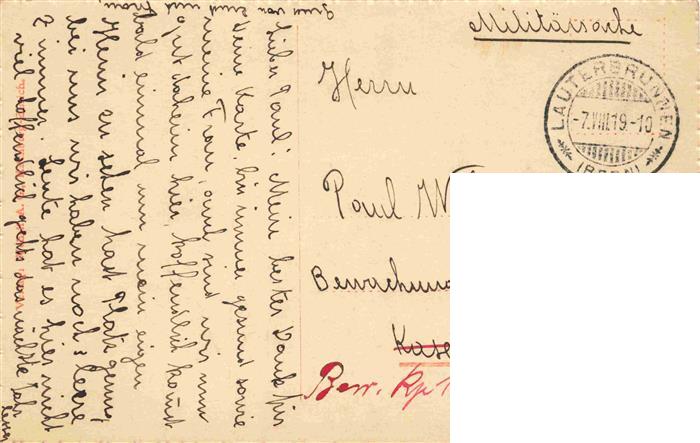 Militärsache
LAUTERBRUNNEN
-7.VIII.19.-10
(BERN)
Herrn
Paul W
Bewachung
Kase
Bew. Kp 1
Lieber Paul! Mein bester Dank für
Deine Karte, bin immer gesund sowie
meine Frau, und sind wir nun
gut daheim hier, hoffendlich kommst
bald einmal um mein eigen
Heim zu sehen, hast Platz genug
bei uns wir haben noch 2 leere
Zimmer. Leute hat es hier nicht
viel hoffendlich gehts das nächste Jahr
besser
Gruss von und Frau